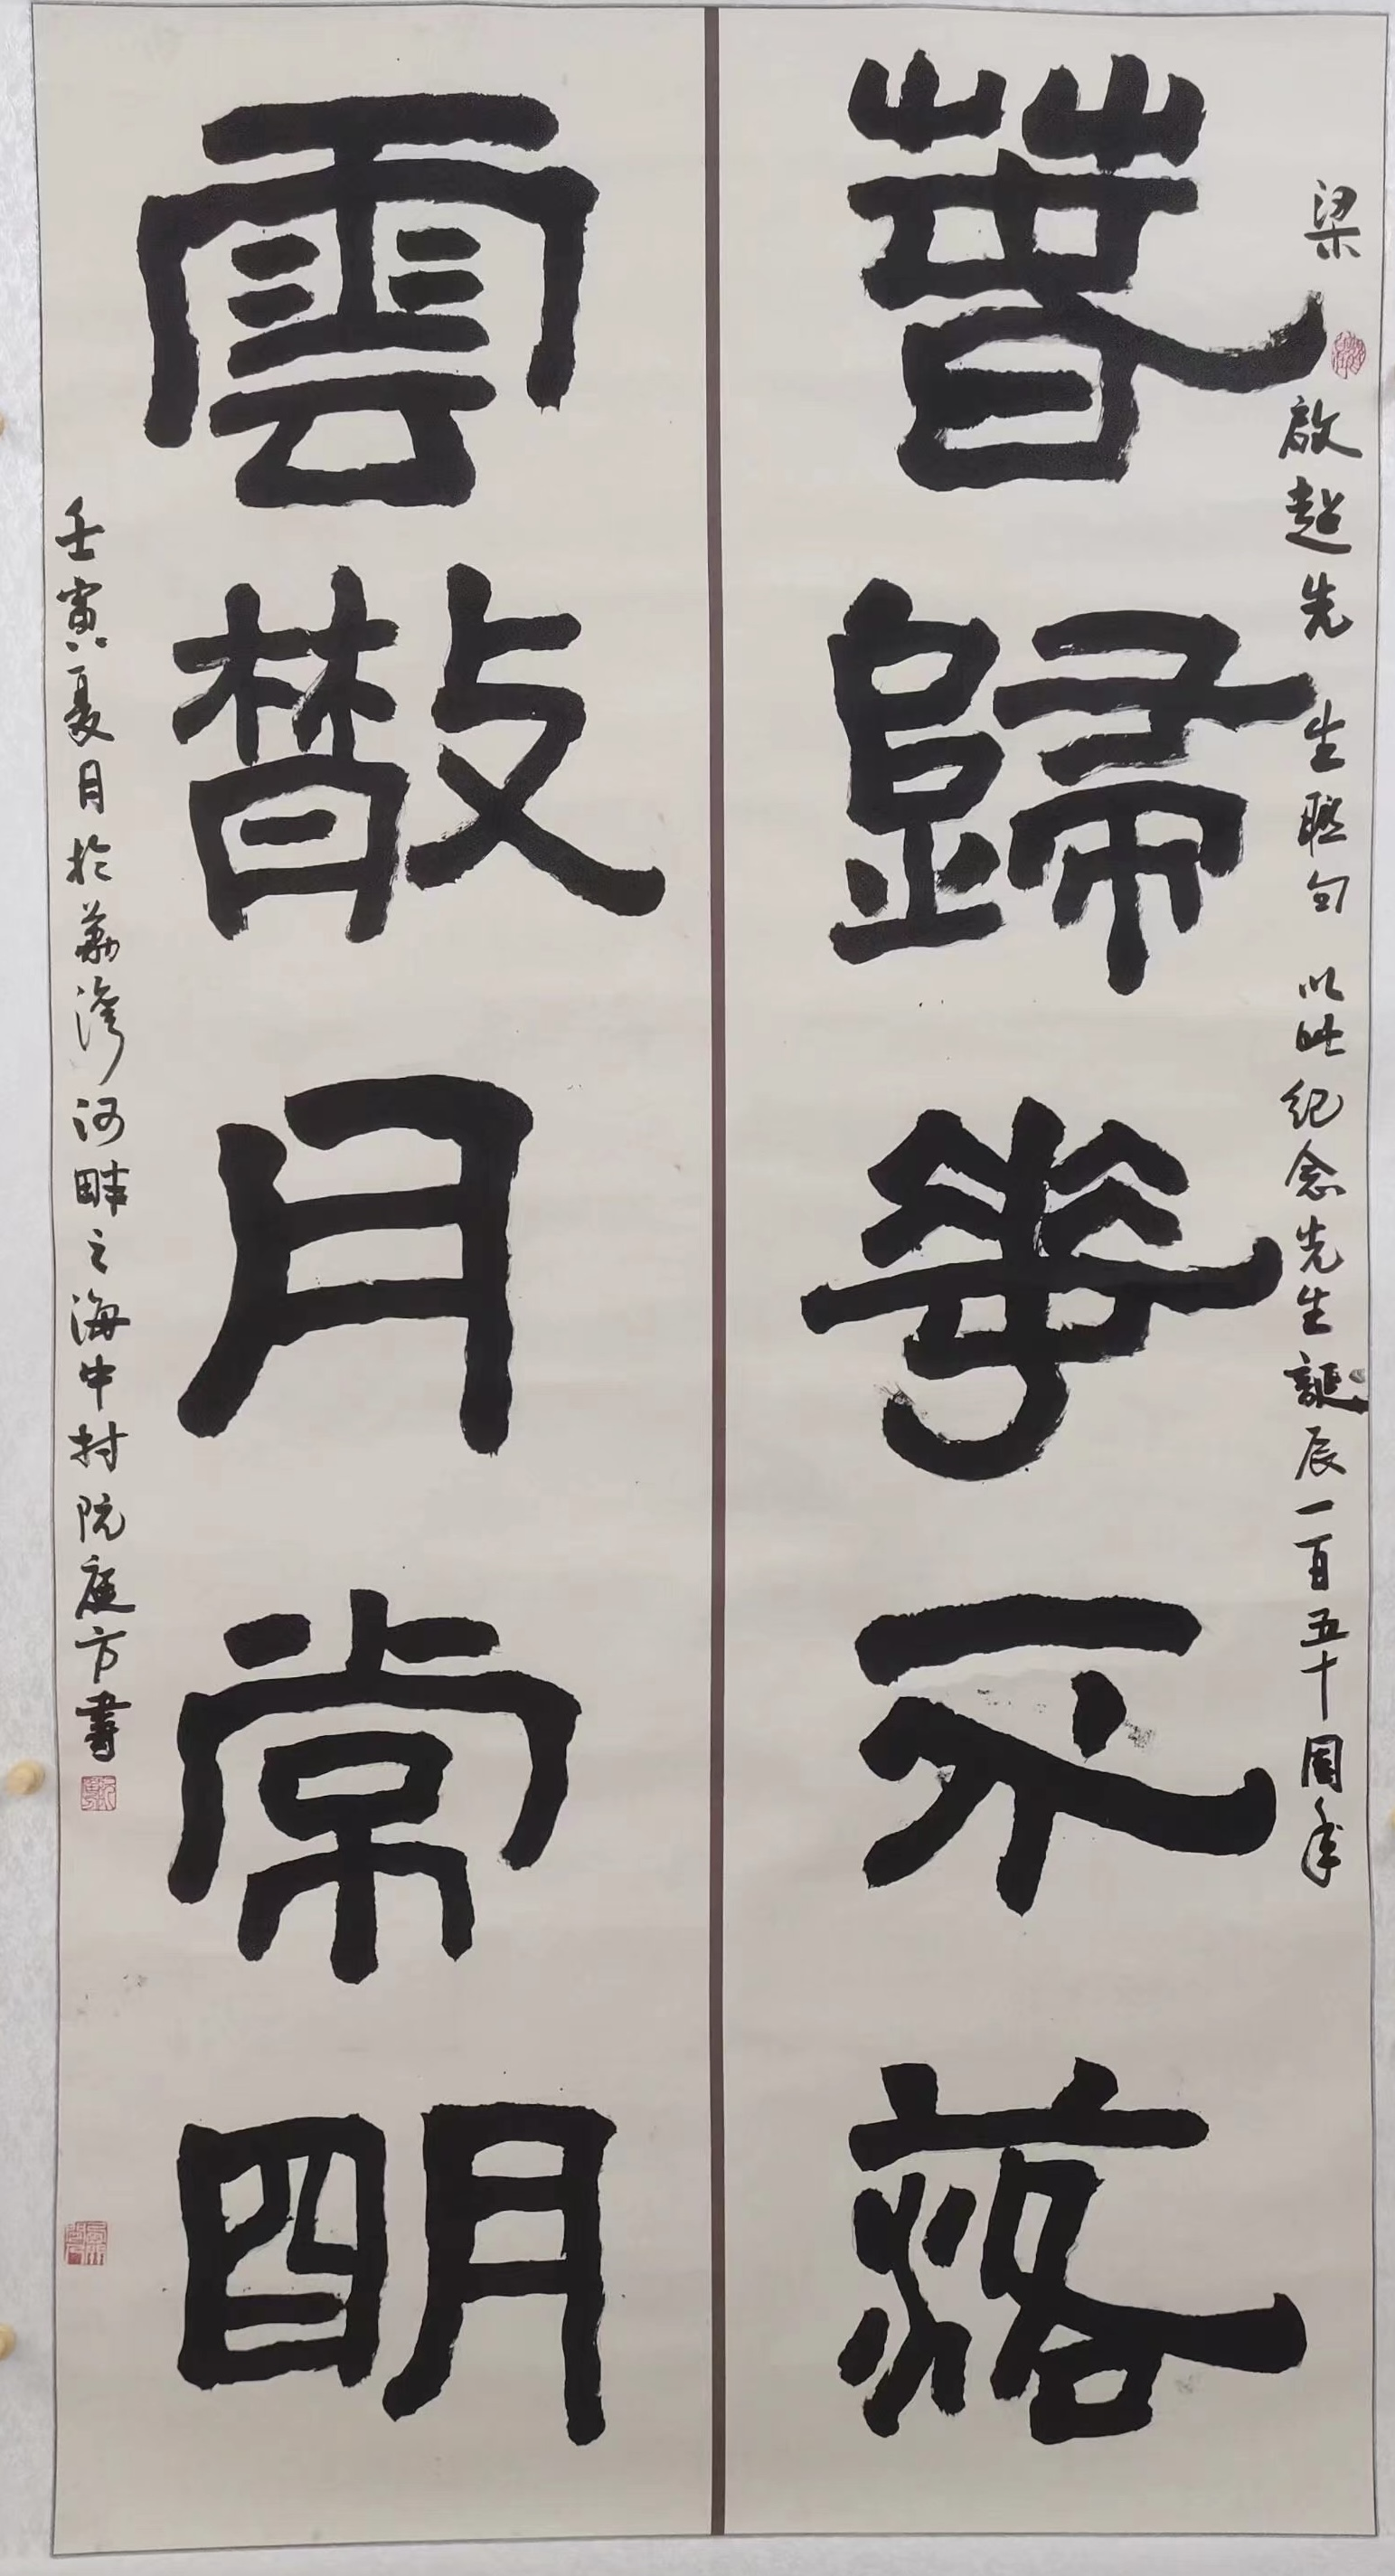 梁啟超先生聯句以此紀念先生誕辰一百五十周年
春歸華不落
雲散月常明
壬寅夏月於荔灣河畔之海中村阮庭方書